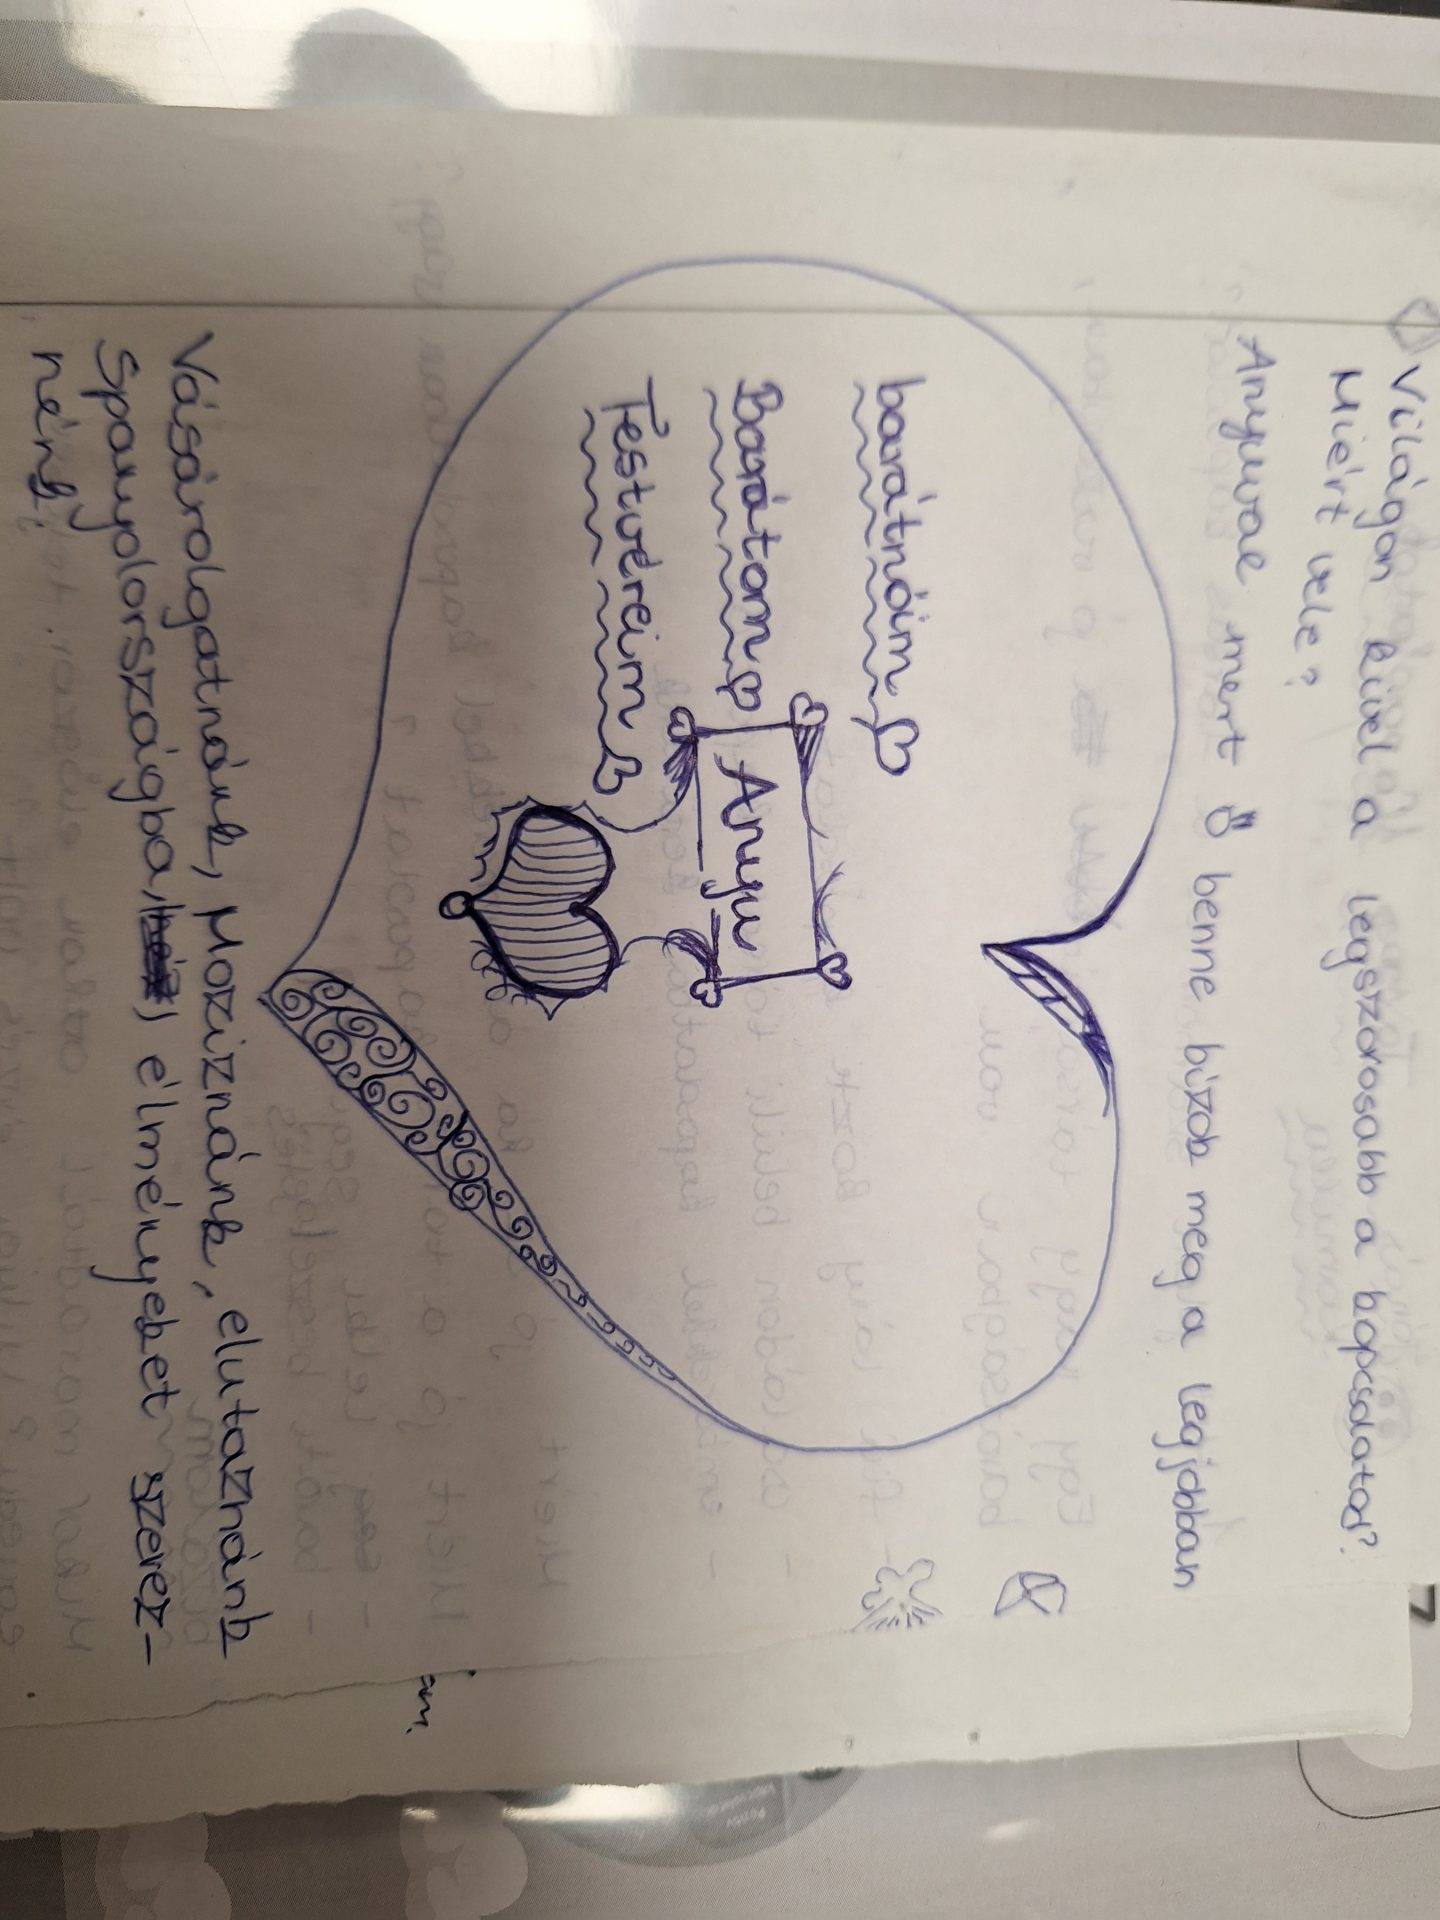 Világon kivel a legszorosabb a kapcsolatod?
Miért vele?
Anyuval mert ő benne bízok meg a legjobban
barátnőim
Barátom
Testvéreim
Anyu
Vásárolgatnánk, Moziznánk, elutaznánk
Spanyolországba, élményeket szerez-
nénk.